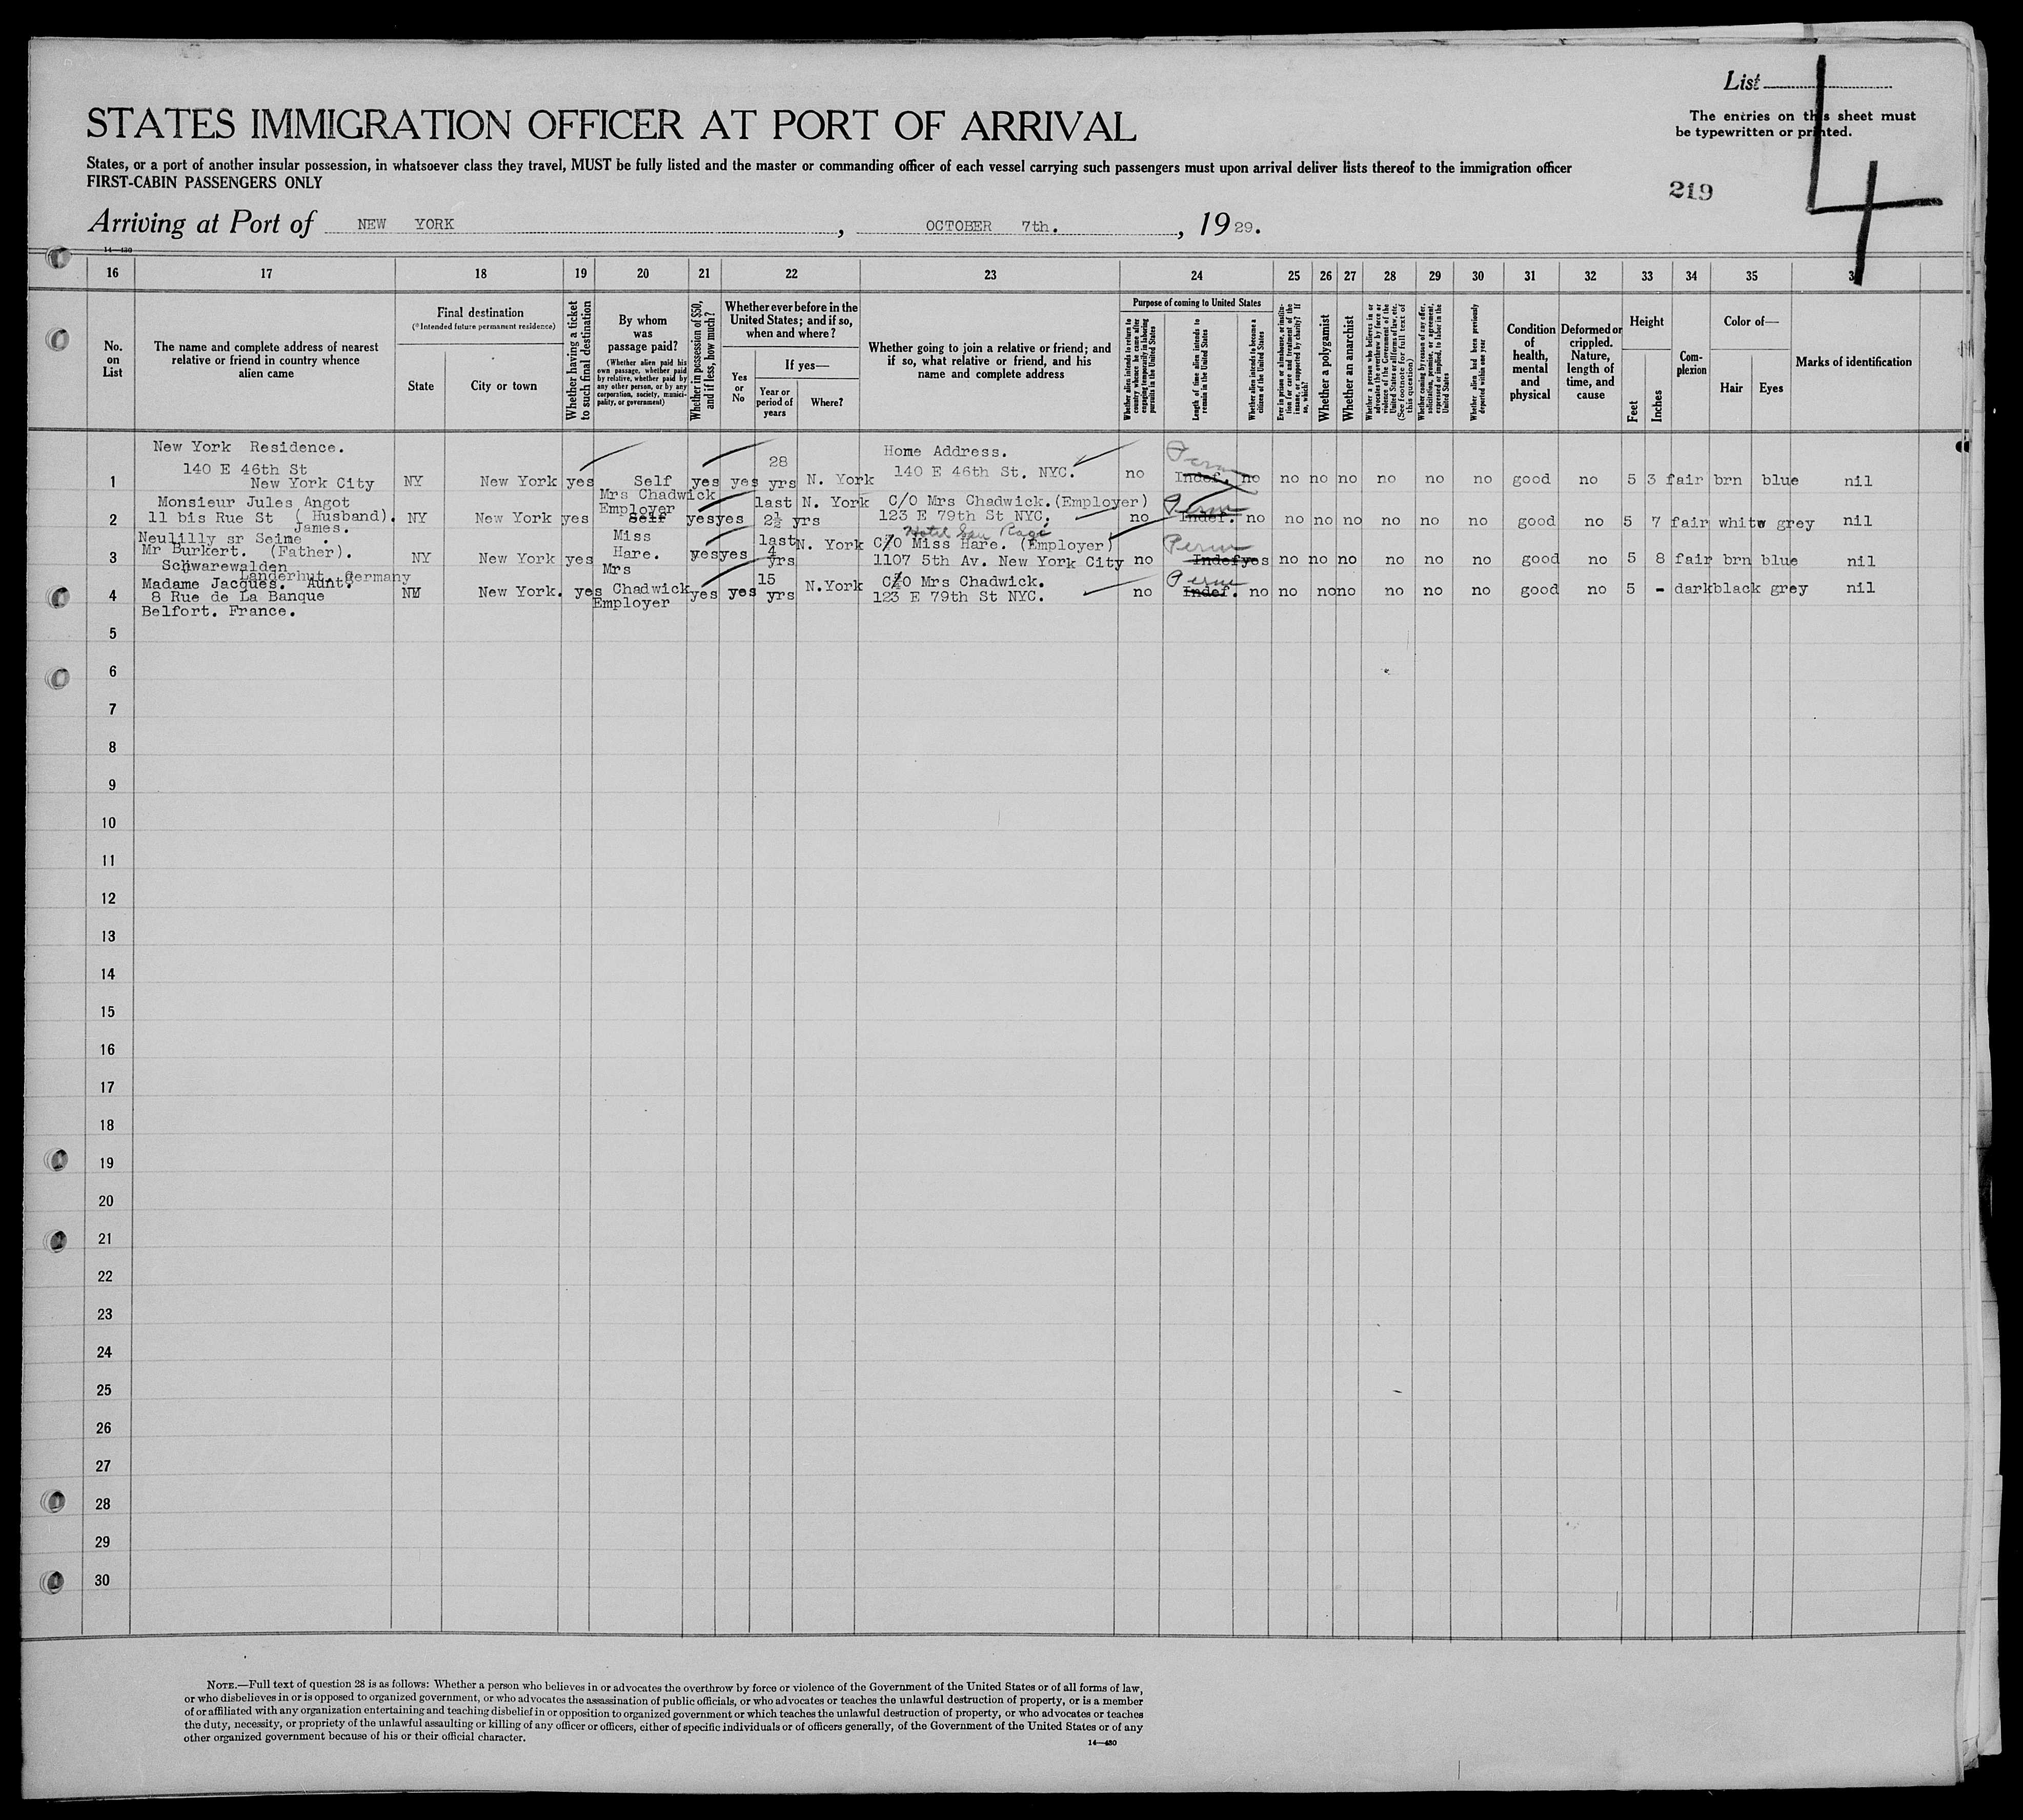 List
The entries on this sheet must
be typewritten or printed.
4
STATES IMMIGRATION OFFICER AT PORT OF ARRIVAL
States, or a port of another insular possession, in whatsoever class they travel, MUST be fully listed and the master or commanding officer of each vessel carrying such passengers must upon arrival deliver lists thereof to the immigration officer
FIRST-CABIN PASSENGERS ONLY
219
Arriving at Port of NEW YORK, OCTOBER 7th., 1929.
14—430
16 17 18 19 20 21 22 23 24 25 26 27 28 29 30 31 32 33 34 35 3
No. on List
The name and complete address of nearest relative or friend in country whence alien came
Final destination
(*Intended future permanent residence)
State
City or town
Whether having a ticket to such final destination
By whom was passage paid?
(Whether alien paid his own passage, whether paid by relative, whether paid by any other person, or by any corporation, society, municipality, or government)
Whether in possession of $50, and if less, how much?
Whether ever before in the United States; and if so, when and where?
Yes or No
If yes—
Year or period of years
Where?
Whether going to join a relative or friend; and if so, what relative or friend, and his name and complete address
Purpose of coming to United States
Whether alien intends to return to country whence he came after engaging temporarily in laboring pursuits in the United States
Length of time alien intends to remain in the United States
Whether alien intends to become a citizen of the United States
Ever in prison or almshouse, or institution for care and treatment of the insane, or supported by charity? If so, which?
Whether a polygamist
Whether an anarchist
Whether a person who believes in or advocates the overthrow by force or violence of the Government of the United States or all forms of law, etc. (See footnote for full text of this question)
Whether coming by reason of any offer, solicitation, promise, or agreement, expressed or implied, to labor in the United States
Whether alien had been previously deported within one year
Condition of health, mental and physical
Deformed or crippled. Nature, length of time, and cause
Height
Feet
Inches
Complexion
Color of—
Hair
Eyes
Marks of identification
New York Residence.
140 E 46th St
New York City
1 NY New York yes Self yes yes 28 yrs N. York
Home Address.
140 E 46th St. NYC.
no Perm Indef. no no no no no no no good no 5 3 fair brn blue nil
Monsieur Jules Angot
11 bis Rue St (Husband).
James.
Neulilly sr Seine.
2 NY New York yes
Mrs Chadwick
Employer
Self
yes yes last 2½ yrs N. York
C/O Mrs Chadwick.(Employer)
123 E 79th St NYC.
no Perm Indef. no no no no no no no good no 5 7 fair white grey nil
Mr Burkert. (Father).
Schwarewalden
Landerhut. Germany
3 NY New York yes
Miss
Hare.
yes yes last 4 yrs N. York
Hotel San
C/O Miss Hare. (Employer)
1107 5th Av. New York City
no Perm Indef yes no no no no no no good no 5 8 fair brn blue nil
Madame Jacques. Aunt.
8 Rue de La Banque
Belfort. France.
4 New York. yes
Mrs
Chadwick
Employer
yes yes 15 yrs N.York
C/O Mrs Chadwick.
123 E 79th St NYC.
no Perm Indef. no no no no no no no good no 5 - dark black grey nil
5
6
7
8
9
10
11
12
13
14
15
16
17
18
19
20
21
22
23
24
25
26
27
28
29
30
NOTE.—Full text of question 28 is as follows: Whether a person who believes in or advocates the overthrow by force or violence of the Government of the United States or of all forms of law,
or who disbelieves in or is opposed to organized government, or who advocates the assassination of public officials, or who advocates or teaches the unlawful destruction of property, or is a member
of or affiliated with any organization entertaining and teaching disbelief in or opposition to organized government or which teaches the unlawful destruction of property, or who advocates or teaches
the duty, necessity, or propriety of the unlawful assaulting or killing of any officer or officers, either of specific individuals or of officers generally, of the Government of the United States or of any
other organized government because of his or their official character.
14—430